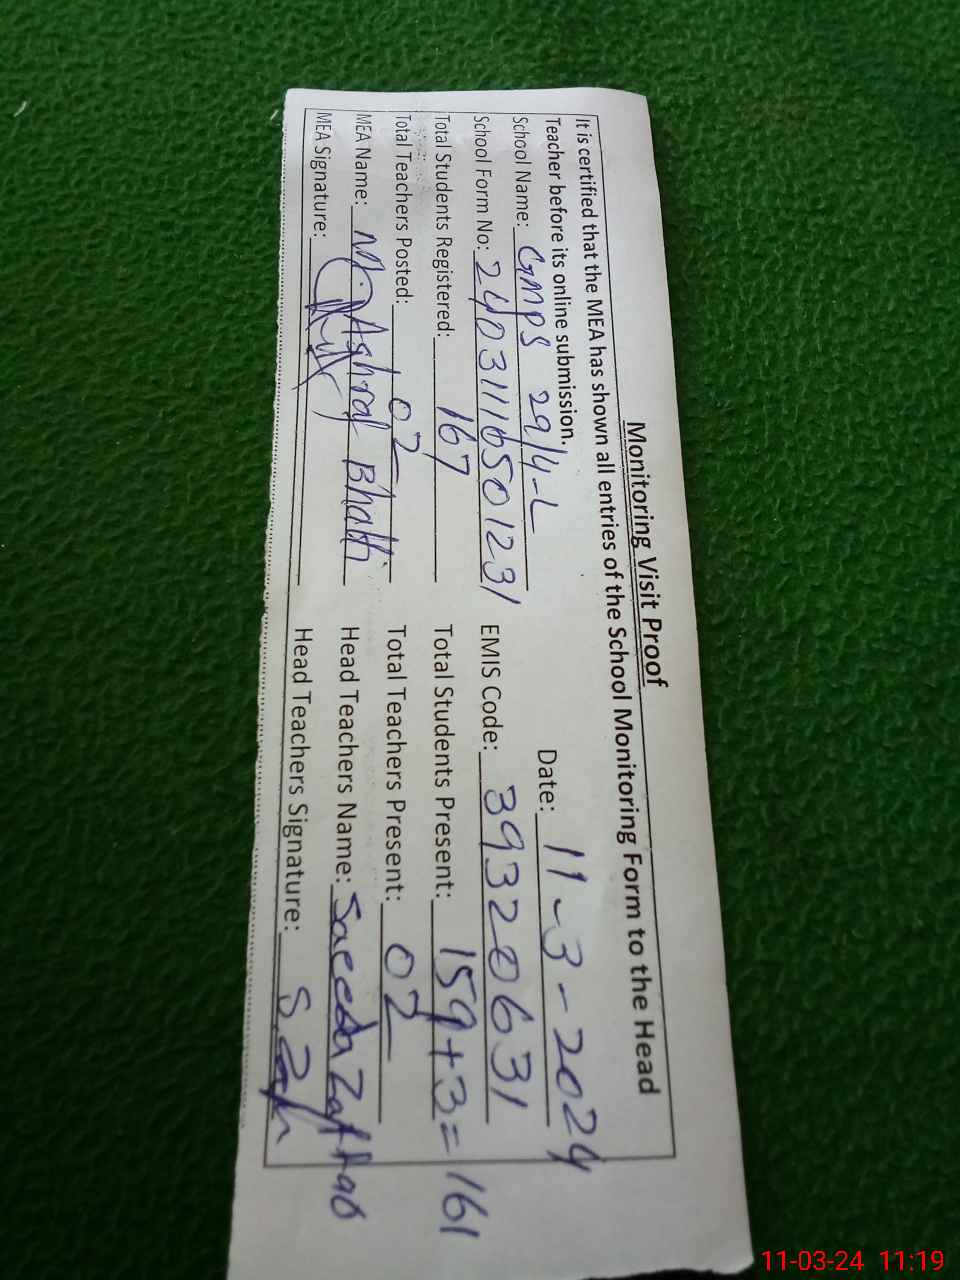 Monitoring Visit Proof
It is certified that the MEA has shown all entries of the School Monitoring Form to the Head
Teacher before its online submission. Date: 11-3-2024
School Name: GMPS 29/4-L
School Form No: 24031116501231 EMIS Code: 39320631
Total Students Registered: 167 Total Students Present: 159+3=161
Total Teachers Posted: 02 Total Teachers Present: 02
MEA Name: M. Ashraf Bhatti Head Teachers Name: Saeeda
MEA Signature: Head Teachers Signature: S.
11-03-24 11:19